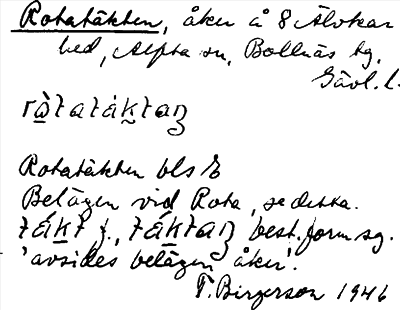 Rotatäkten, åker å 8 Älvkar
hed, Alfta sn, Bollnäs tg,
Gävl. l.
rà̱tatákt̬aꞃ
Rotatäkten bls
Belägen vid Rota, se detta.
tákt f., táktaꞃ best. form sg.
'avsides belägen åker'.
T. Birgerson 1946